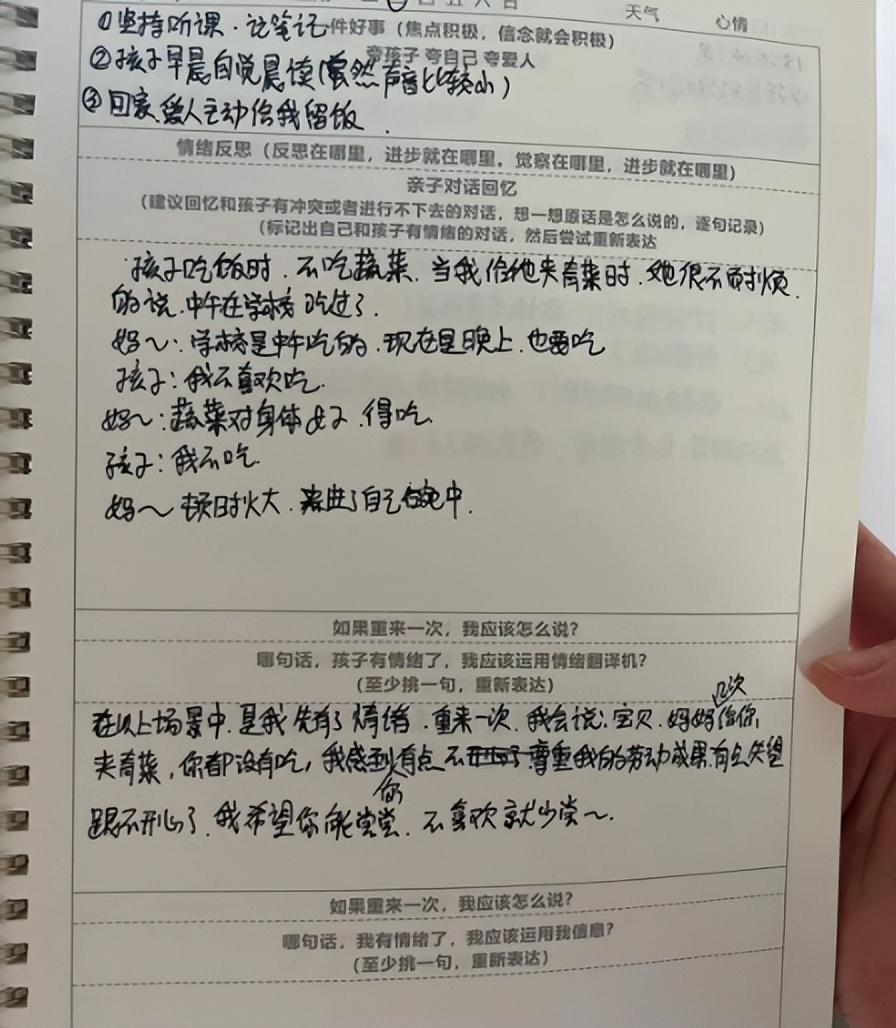 六 日
天气 心情
①坚持听课.记笔记
件好事(焦点积极,信念就会积极)
夸孩子 夸自己 夸爱人
②孩子早晨自觉晨读(虽然声音比较小)
③回家,爱人主动给我留饭.
情绪反思(反思在哪里,进步就在哪里,觉察在哪里,进步就在哪里)
亲子对话回忆
(建议回忆和孩子有冲突或者进行不下去的对话,想一想原话是怎么说的,逐句记录)
(标记出自己和孩子有情绪的对话,然后尝试重新表达
孩子吃饭时.不吃蔬菜.当我给他夹青菜时.她很不耐烦.
的说.中午在学校吃过了.
妈~:学校是中午吃的.现在是晚上.也要吃
孩子:我不喜欢吃.
妈~:蔬菜对身体好.得吃.
孩子:我不吃.
妈~顿时火大.
进了自己 中.
如果重来一次,我应该怎么说?
哪句话,孩子有情绪了,我应该运用情绪翻译机?
(至少挑一句,重新表达)
在以上场景中.是我先有了情绪.重来一次.我会说:宝贝.妈妈几次给你
夹青菜,你都没有吃,我感到你有点不尊重我的劳动成果.有点失望
跟不开心了.我希望你能尝尝.不喜欢就少尝~.
如果重来一次,我应该怎么说?
哪句话,我有情绪了,我应该运用我信息?
(至少挑一句,重新表达)